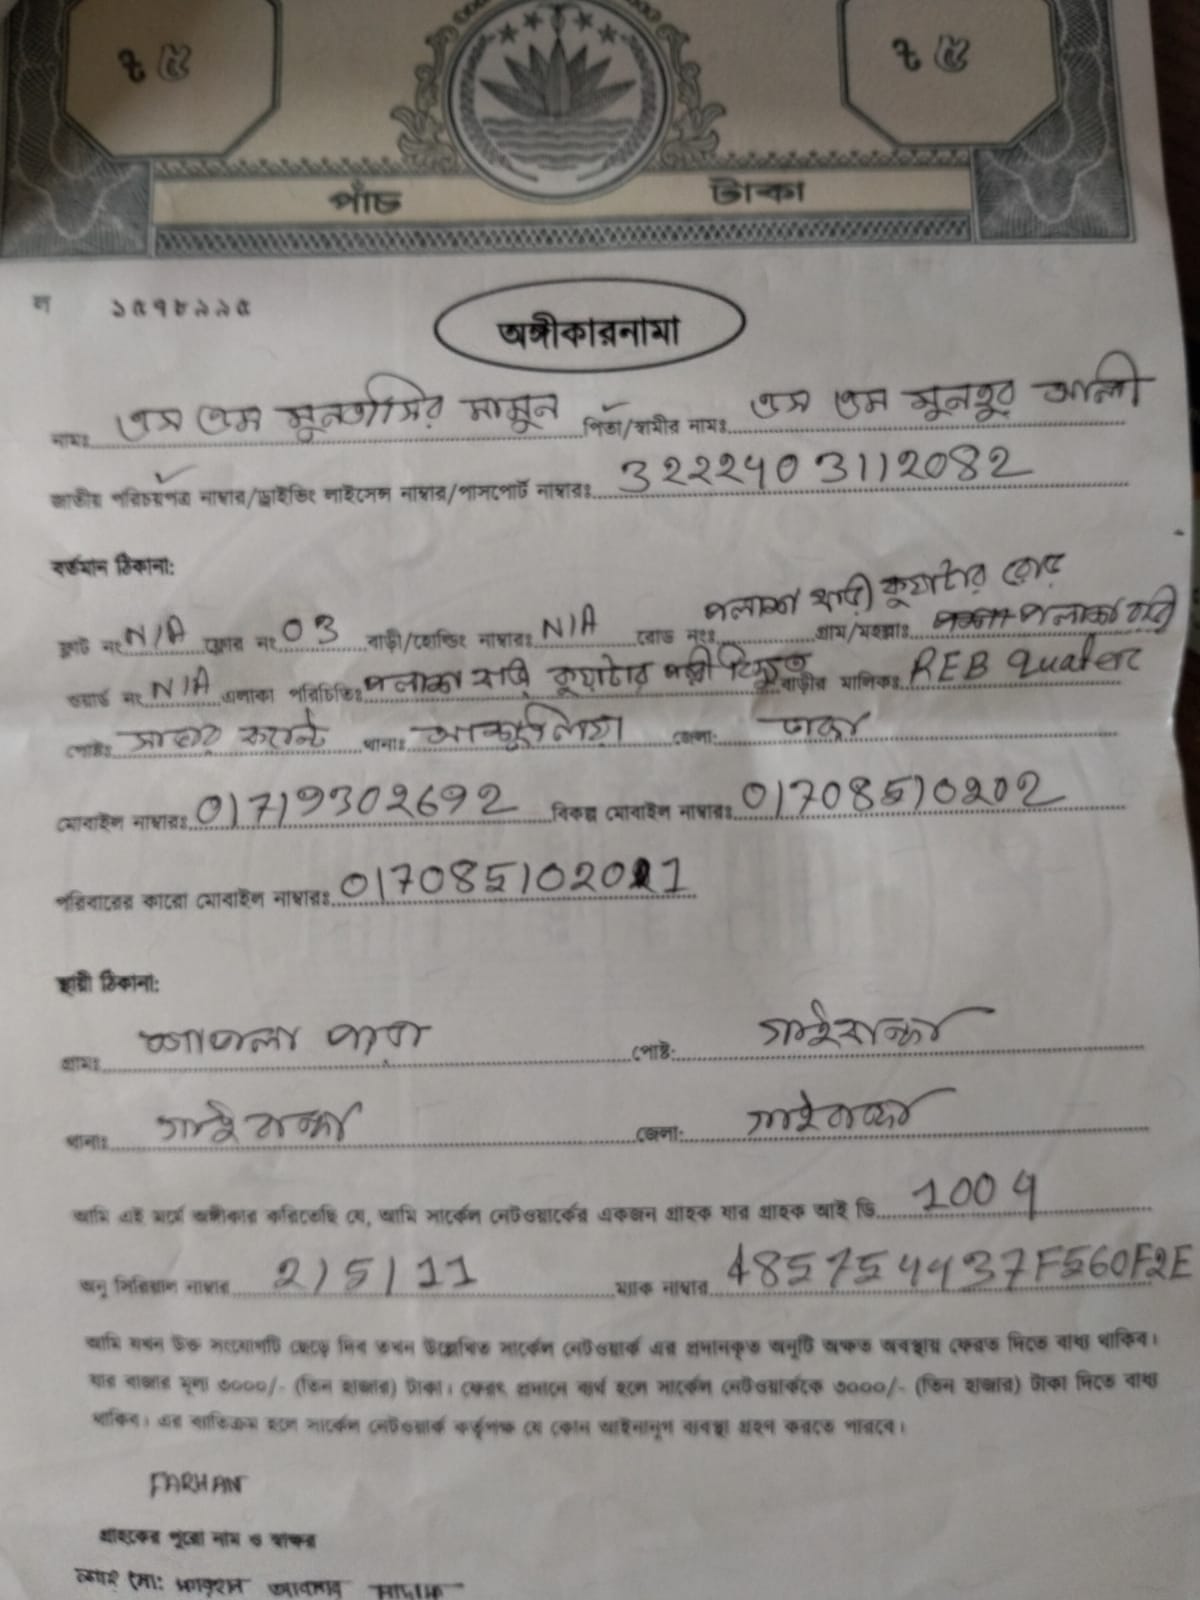 ৳ ৫ ৳ ৫
পাঁচ টাকা
ন ১৫৭৮৯৯৫
অঙ্গীকারনামা
নামঃ এস এম মুনতাসির মামুন পিতা/স্বামীর নামঃ এস এম মুনছুর আলী
জাতীয় পরিচয়পত্র নাম্বার/ড্রাইভিং লাইসেন্স নাম্বার/পাসপোর্ট নাম্বারঃ 3222403112082
বর্তমান ঠিকানা:
ফ্লাট নং N/A ফ্লোর নং 03 বাড়ী/হোল্ডিং নাম্বারঃ N/A রোড নংঃ পলাশ বাড়ী কুয়াটার রোড গ্রাম/মহল্লাঃ পলাশ বাড়ী
ওয়ার্ড নং N/A এলাকা পরিচিতিঃ পলাশ বাড়ি কুয়াটার পল্লী বিদ্যুত বাড়ীর মালিকঃ REB Quater
পোষ্টঃ থানাঃ আশুলিয়া জেলা: ঢাকা
মোবাইল নাম্বারঃ 01719302692 বিকল্প মোবাইল নাম্বারঃ 01708510202
পরিবারের কারো মোবাইল নাম্বারঃ
স্থায়ী ঠিকানা:
গ্রামঃ পাড়া পোষ্ট: গাইবান্ধা
থানাঃ গাইবান্ধা জেলা: গাইবান্ধা
আমি এই মর্মে অঙ্গীকার করিতেছি যে, আমি সার্কেল নেটওয়ার্কের একজন গ্রাহক যার গ্রাহক আই ডি 1004
অনু সিরিয়াল নাম্বার 2/5/11 ম্যাক নাম্বার 485754437F560F2E
আমি যখন উক্ত সংযোগটি ছেড়ে দিব তখন উল্লেখিত সার্কেল নেটওয়ার্ক এর প্রদানকৃত অনুটি অক্ষত অবস্থায় ফেরত দিতে বাধ্য থাকিব।
যার বাজার মূল্য ৩০০০/- (তিন হাজার) টাকা। ফেরৎ প্রদানে ব্যর্থ হলে সার্কেল নেটওয়ার্ককে ৩০০০/- (তিন হাজার) টাকা দিতে বাধ্য
থাকিব। এর ব্যতিক্রম হলে সার্কেল নেটওয়ার্ক কর্তৃপক্ষ যে কোন আইনানুগ ব্যবস্থা গ্রহণ করতে পারবে।
FARHAN
গ্রাহকের পুরো নাম ও স্বাক্ষর
মো: